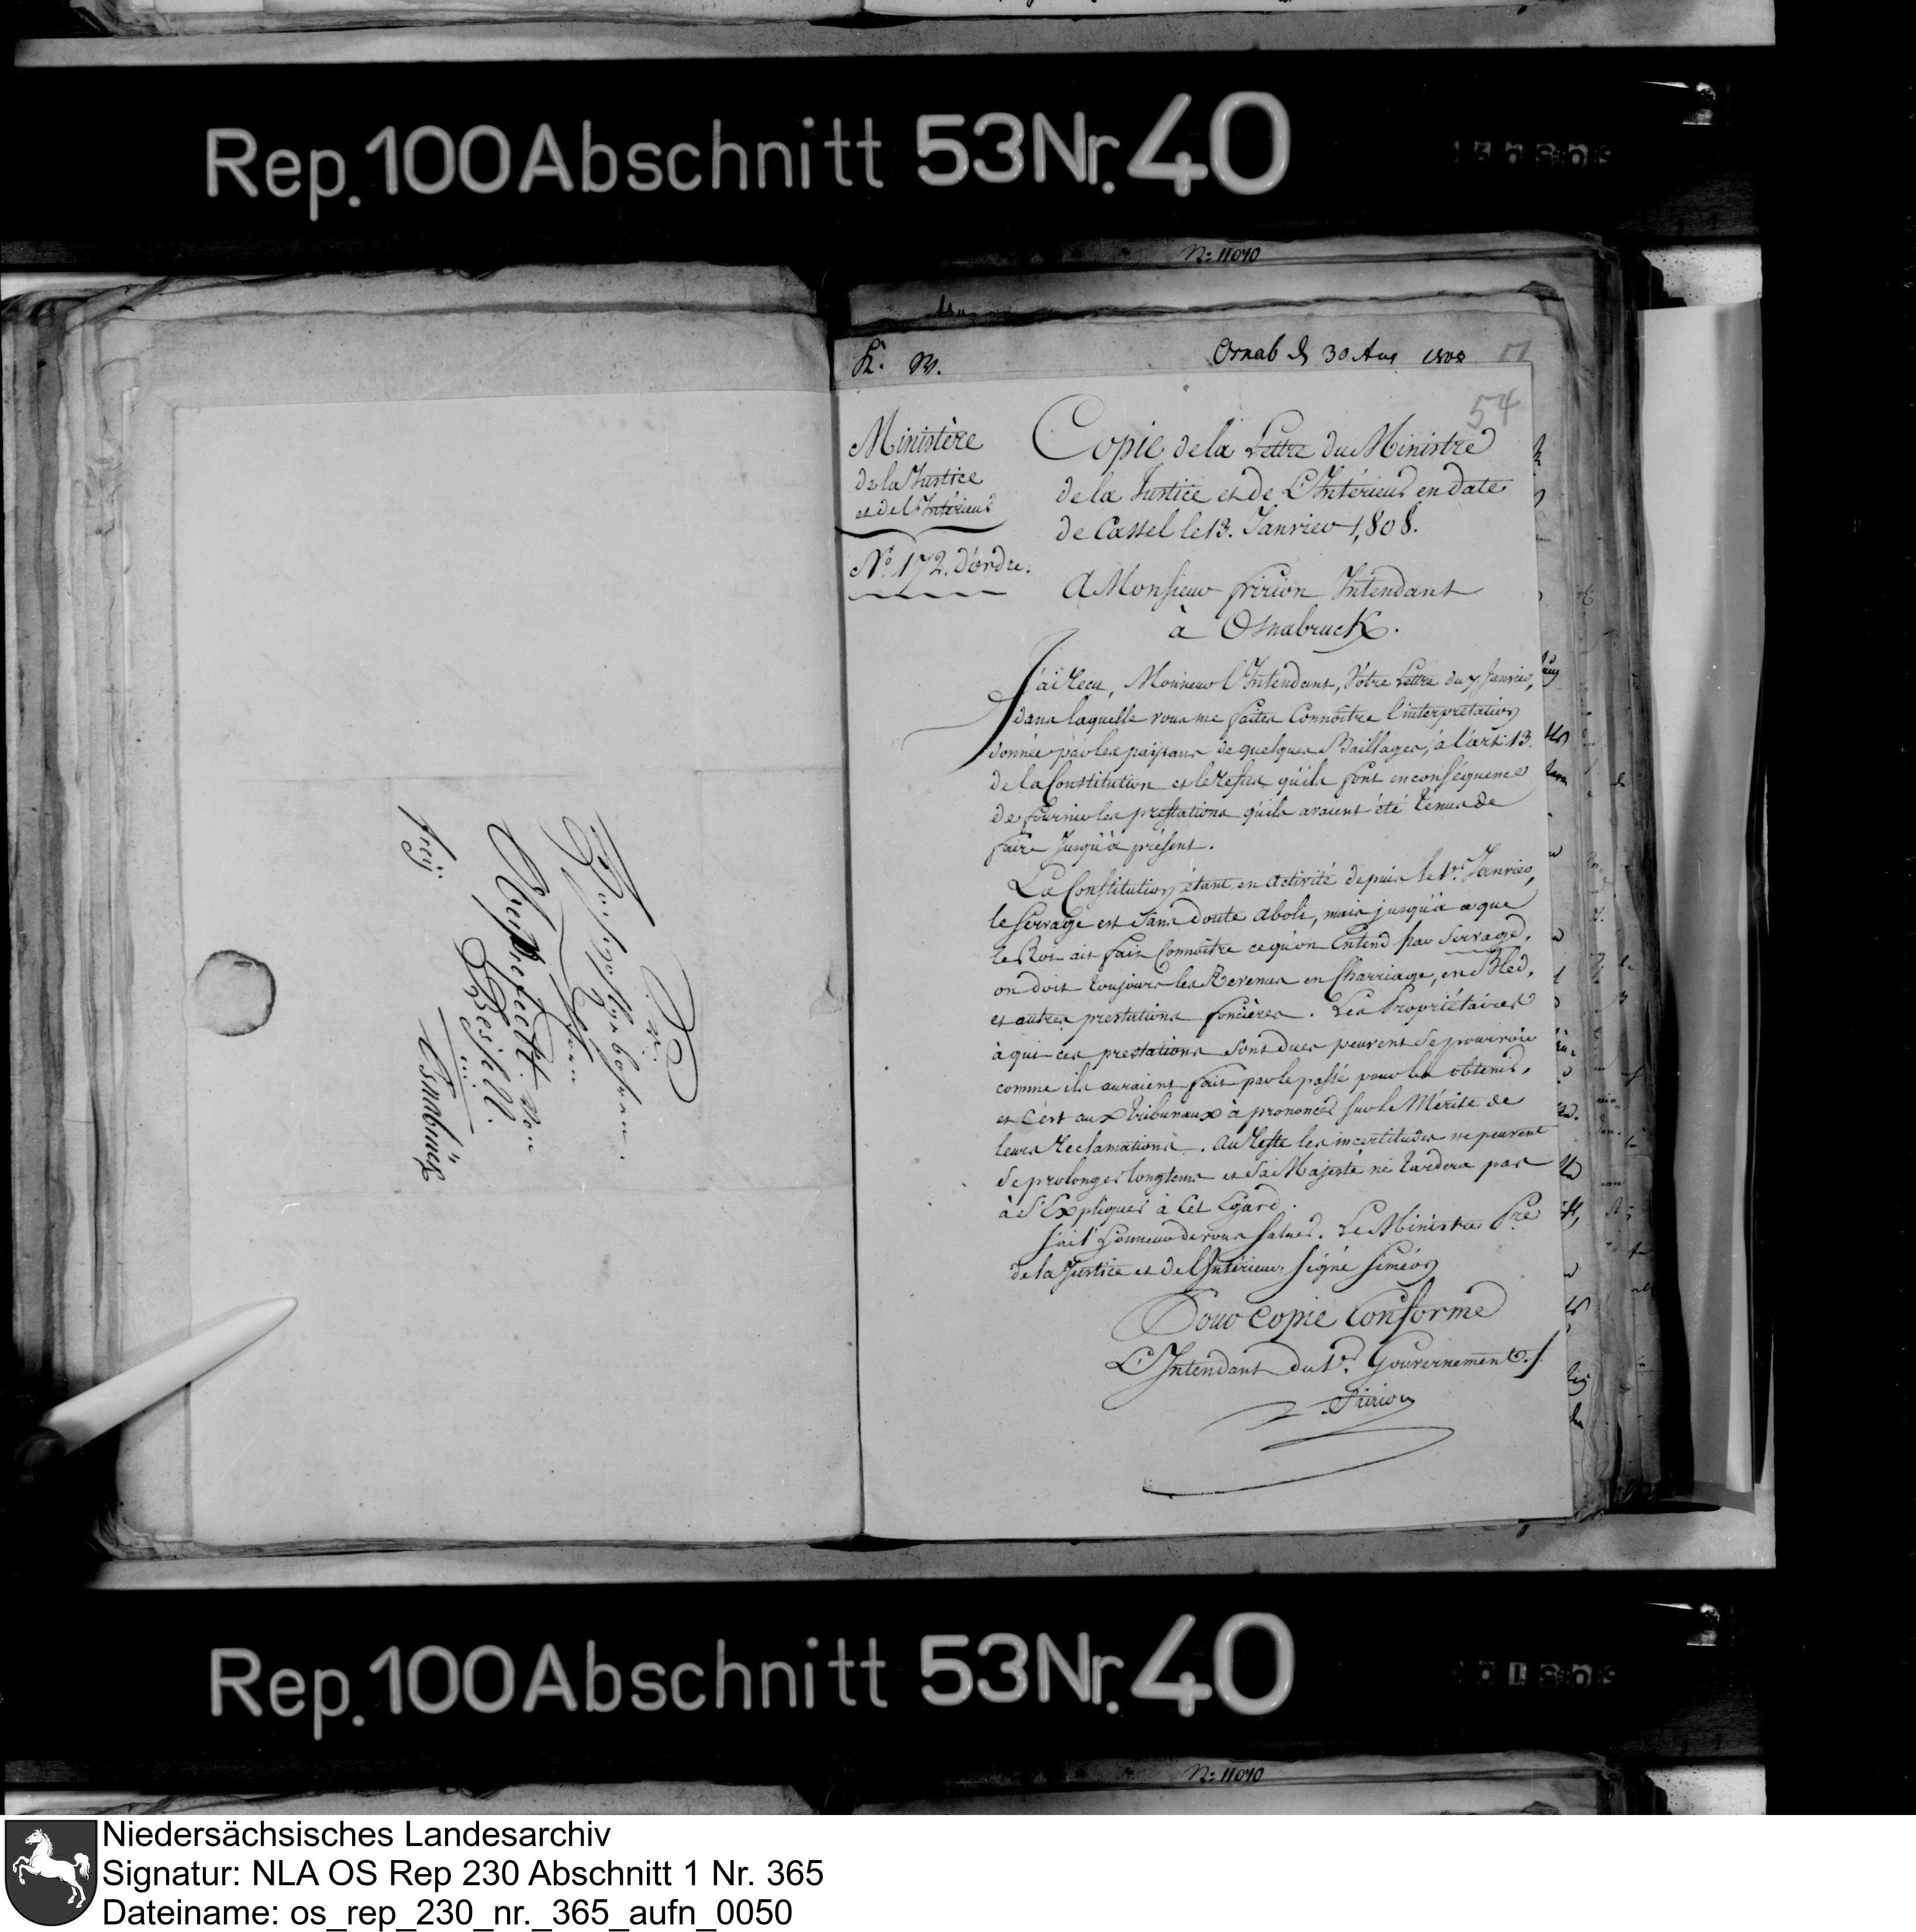 Rep. 100 Abschnitt 53 Nr. 40
N: 11040
K. W.
Osnab d 30 Aug 1808
54
Sr.
Hochwohlgebohren
Herrn
Präfect von
Pestel.
in
Osnabrück
freÿ
Ministère
de la Justice
et de l'Intérieur
N.º 172. d'ordre.
Copie de la Lettre du Ministre
de la Justice et de L'Intérieur en date
de Cassel le 13. Janvier 1,808.
A Monsieur Fririon Intendant
à Osnabruck.
J'ai Recu, Monsieur l'Intendant, Votre Lettre du 7. Janvier,
dans laquelle vous me faites Connoitre l'interprétation
donnée par les paÿsans de quelques Baillages, à l'art: 13.
de la Constitution et le Refus qu'ils font en conséquence
de fournir les prestations qu'ils avaient été tenus de
faire Jusqu'à présent.
La Constitution étant en Activité depuis le 1.er Janvier,
le Servage est Sans doute Aboli, mais jusqu'à ce que
le Roi ait fait Connoitre ce qu'on Entend par Servage,
on doit toujours les Revenus en Charriage, en Bled,
et autres prestations foncières. Les Propriétaires
à qui ces prestations Sont dues peuvent Se pourvoir
comme ils auraient fait par le passé pour les obtenir,
et C'est aux tribunaux à prononcer sur le Mérite de
leurs Réclamations. Au Reste les incertitudes ne peuvent
Se prolonger longtems et Sa Majesté ne tardera pas
à S'Expliquer à Cet Egard.
J'ai l'Honneur de vous Saluer. Le Ministre Pre
de la Justice et de l'Intérieur. signé Siméon
Pour Copie Conforme
L'Intendant du 1.er Gouvernement ./.
Fririon
Rep. 100 Abschnitt 53 Nr. 40
N: 11040
Niedersächsisches Landesarchiv
Signatur: NLA OS Rep 230 Abschnitt 1 Nr. 365
Dateiname: os_rep_230_nr._365_aufn_0050